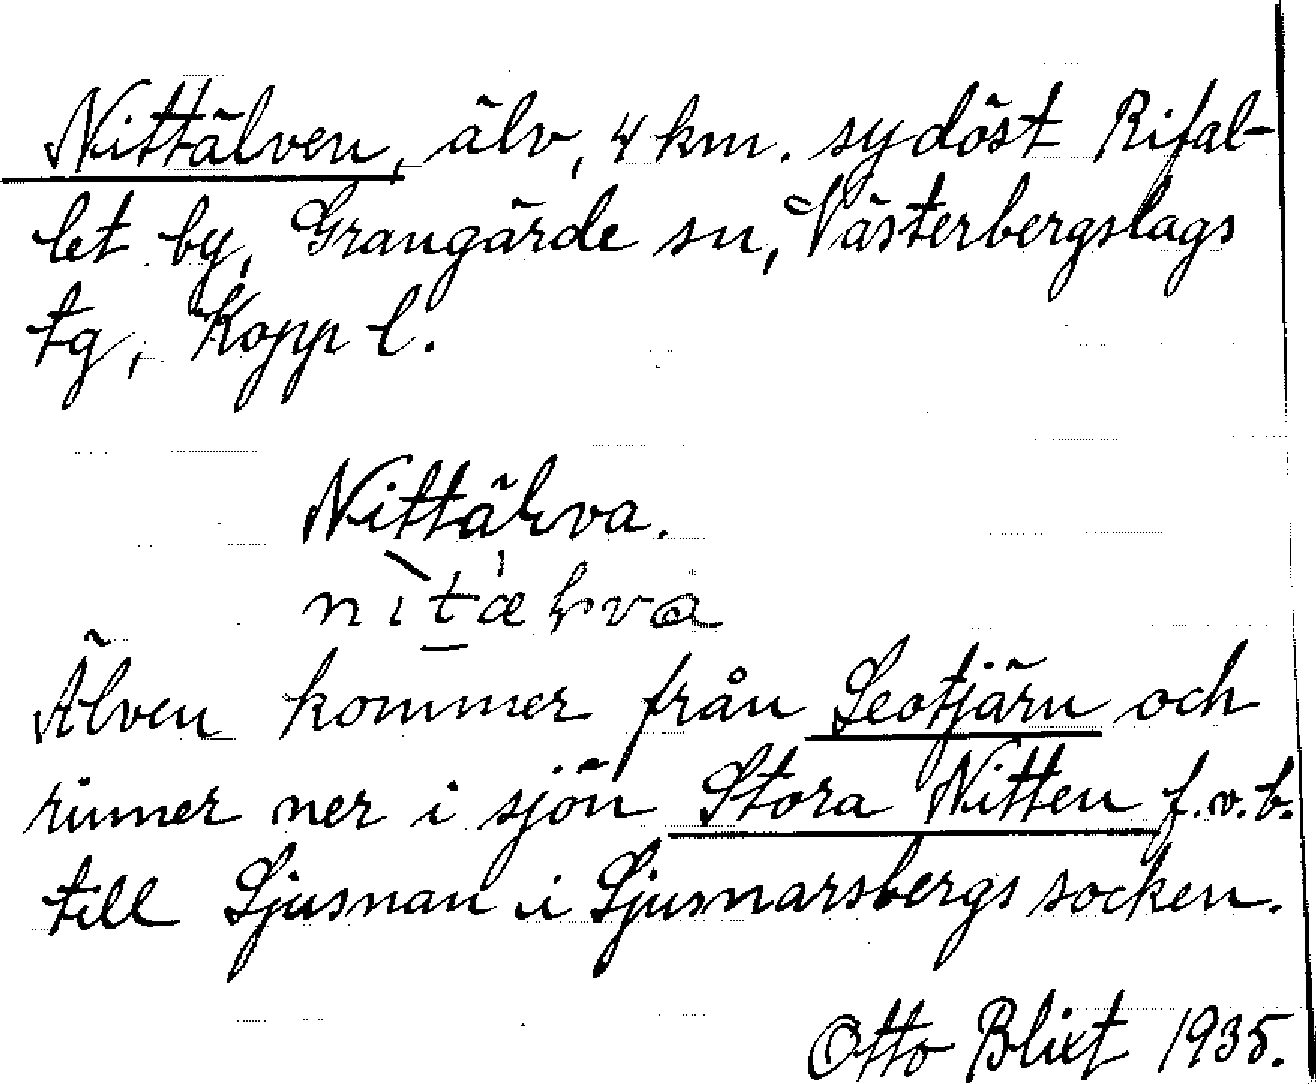 Nittälven, älv, 4 km. sydöst Rifal-
let by, Grangärde sn, Västerbergslags
tg, Kopp l.
Nittäɽva.
nìtæɽva
Älven kommer från Leotjärn och
rinner ner i sjön Stora Nitten f.v.b.
till Ljusnan i Ljusnarsbergs socken.
Otto Blixt 1935.